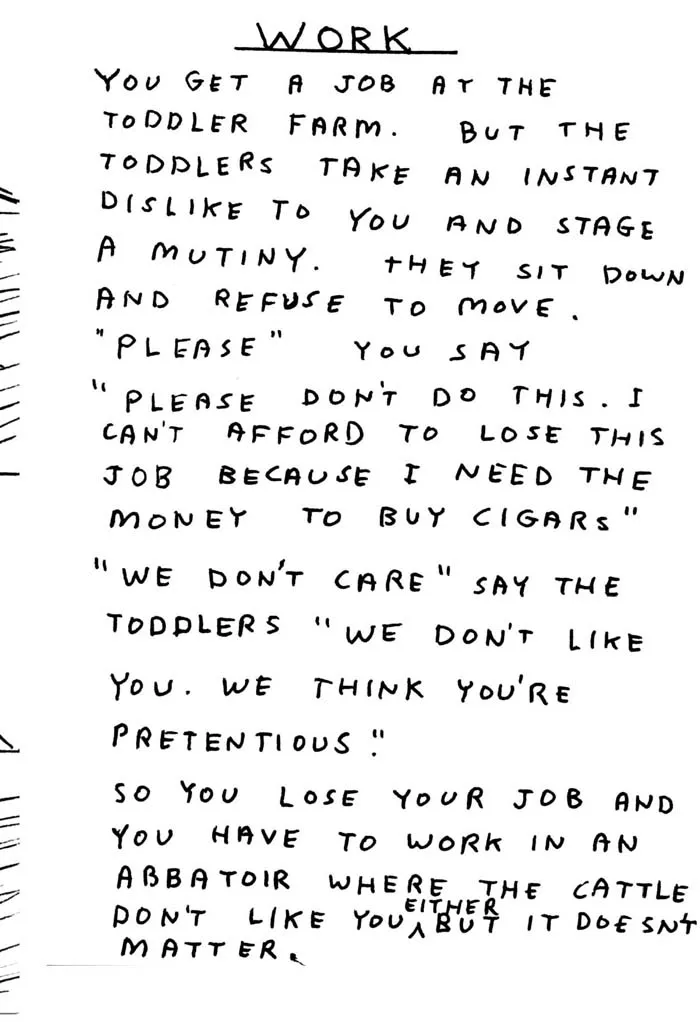 WORK
YOU GET A JOB AT THE
TODDLER FARM. BUT THE
TODDLERS TAKE AN INSTANT
DISLIKE TO YOU AND STAGE
A MUTINY. THEY SIT DOWN
AND REFUSE TO MOVE.
"PLEASE" YOU SAY
"PLEASE DON'T DO THIS. I
CAN'T AFFORD TO LOSE THIS
JOB BECAUSE I NEED THE
MONEY TO BUY CIGARS"
"WE DON'T CARE" SAY THE
TODDLERS "WE DON'T LIKE
YOU. WE THINK YOU'RE
PRETENTIOUS."
SO YOU LOSE YOUR JOB AND
YOU HAVE TO WORK IN AN
ABBATOIR WHERE THE CATTLE
DON'T LIKE YOU EITHER BUT IT DOESN'T
MATTER.